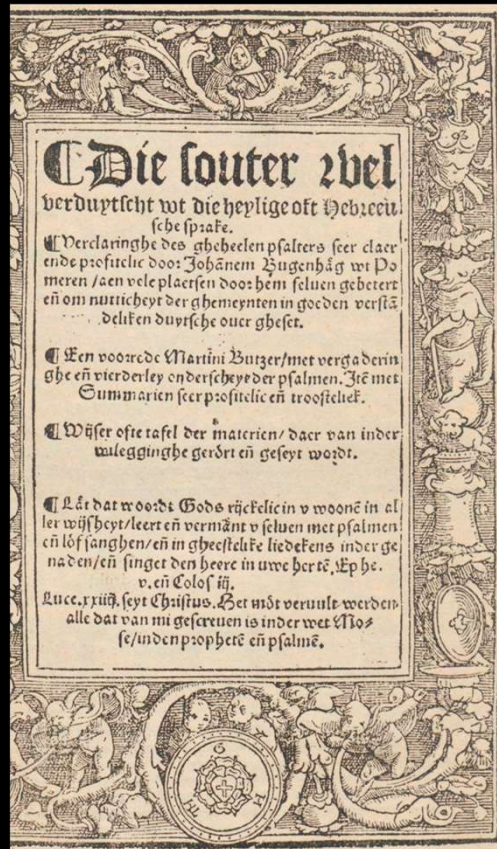 ¶Die souter wel
verduytscht wt die heylige oft Hebreeu
sche sprake.
¶Verclaringhe des gheheelen psalters seer claer
ende profitelic door Johānem Bugenhāg wt Po
meren/aen vele plaetsen door hem seluen gebetert
eñ om nutticheyt der ghemeynten in goeden verstā
deliken duytsche ouer gheset.
¶Een voorrede Martini Butzer/met vergaderin
ghe eñ vierderley onderscheyt der psalmen. Itē met
Summarien seer profitelic eñ troostelick.
¶Wijser ofte tafel der materien/ daer van inder
wtlegginghe gerört eñ geseyt wordt.
¶Lāt dat woordt Gods rijckelic in v woonē in al
ler wijsheyt/leert eñ vermānt v seluen met psalmen
eñ lof sanghen/eñ in gheestelike liedekens inder ge
naden/eñ singet den heere in uwe hertē. Ephe.
v. eñ Colos iij.
Luce.xxiiij. seyt Christus. Het möt veruult werden
alle dat van mi gescreuen is inder wet Mo⸗
se/inden prophetē eñ psalmē.
G
H H